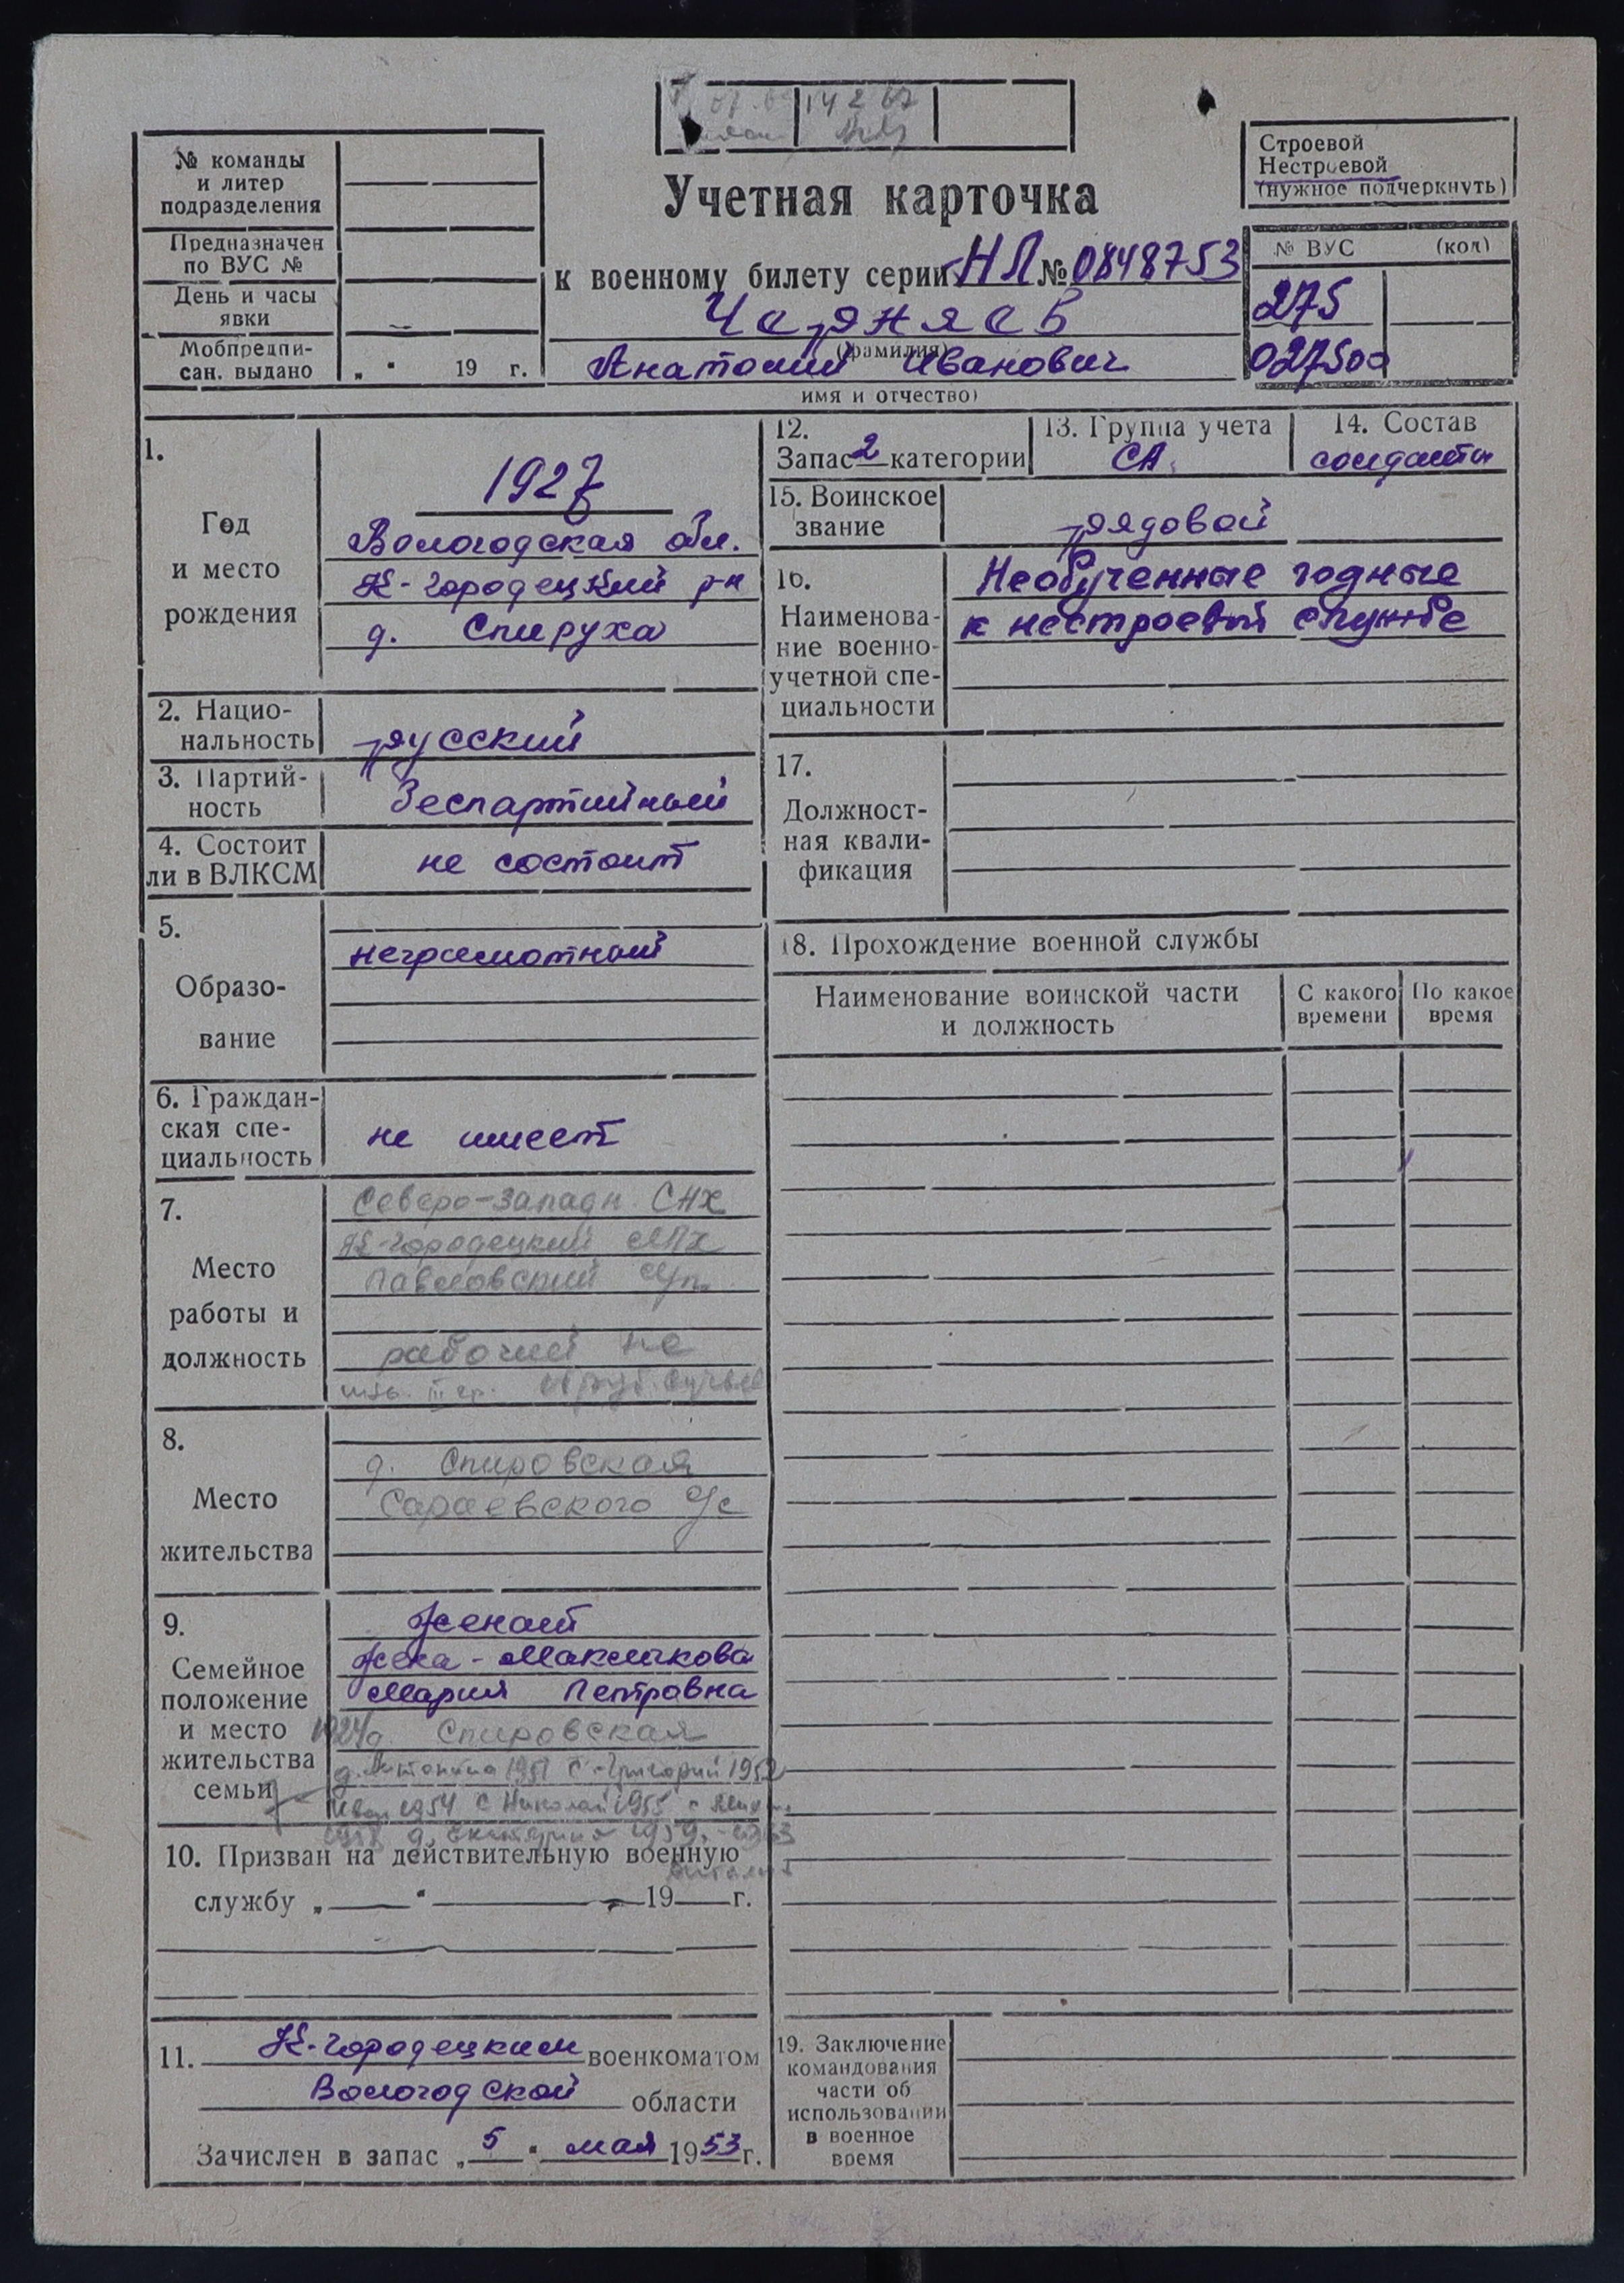 14 2 67
№ команды
и литер
подразделения
Предназначен
по ВУС №
День и часы
явки
Мобпредпи-
сан. выдано „ “ 19 г.
Учетная карточка
к военному билету серии НЛ № 0848753
Чарняев
(фамилия)
Анатолий Иванович
имя и отчество)
Строевой
Нестроевой
(нужное подчеркнуть)
№ ВУС (код)
275
027500
1.
Год
и место
рождения
1927
Вологодская обл.
К-Городецкий р-н
д. Спируха
2. Нацио-
нальность русский
3. Партий-
ность беспартийный
4. Состоит
ли в ВЛКСМ не состоит
5.
Образо-
вание
неграмотный
6. Граждан-
ская спе-
циальность не имеет
7.
Место
работы и
должность
Северо-Западн. СНХ
К-Городецкий ЛПХ
Павловский
рабочий на
инв. III гр.
8.
Место
жительства
д. Спировская
Сараевского с/с
9.
Семейное
положение
и место
жительства
семьи
Женат
жена - Максимкова
Мария Петровна
1924 д. Спировская
д. Антонина 1951 с. Григорий 1952
Иван 1954 с Николай 1955 с
1958 д. Екатерина 1959 - 1963
10. Призван на действительную военную
службу „ “ 19 г.
11. К-Городецким военкоматом
Вологодской области
Зачислен в запас „ 5 “ мая 1953 г.
12.
Запас 2 категории
13. Группа учета
СА
14. Состав
солдаты
15. Воинское
звание рядовой
16.
Наименова-
ние военно-
учетной спе-
циальности
Необученные годные
к нестроевой службе
17.
Должност-
ная квали-
фикация
18. Прохождение военной службы
Наименование воинской части
и должность
С какого
времени
По какое
время
19. Заключение
командования
части об
использовании
в военное
время